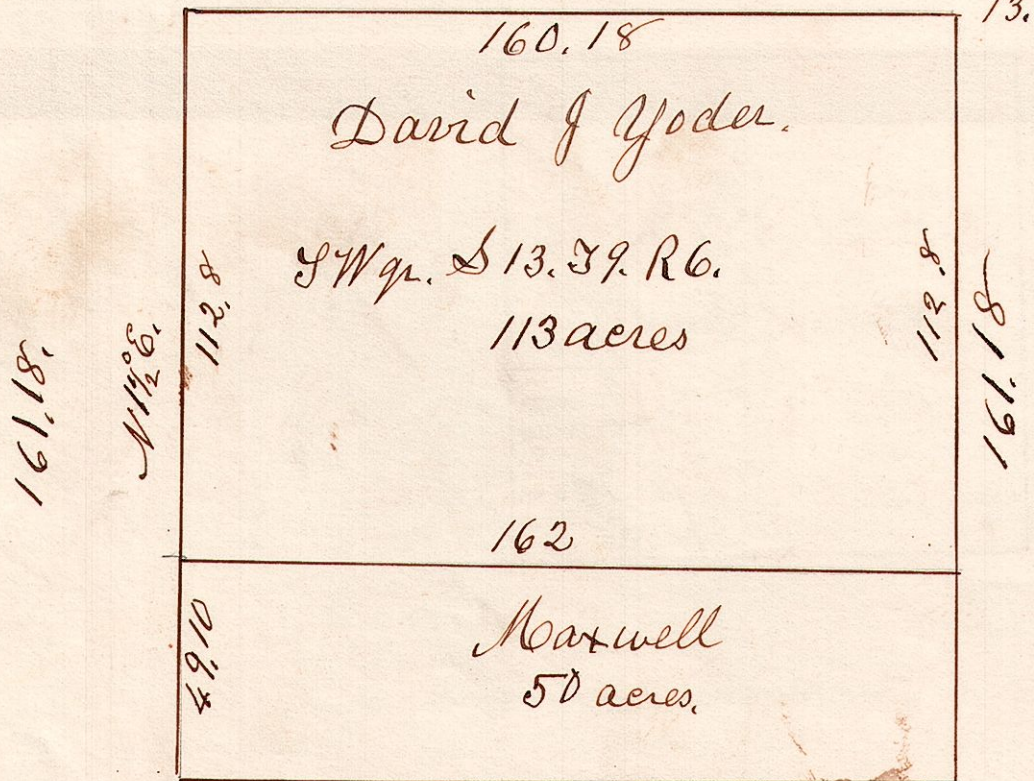 13.
160.18
David J Yoder.
SW qr. S 13. T9. R6.
113 acres
112.8
112.8
N 1 1/2° E.
161.18.
161.18
162
49.10
Maxwell
50 acres.